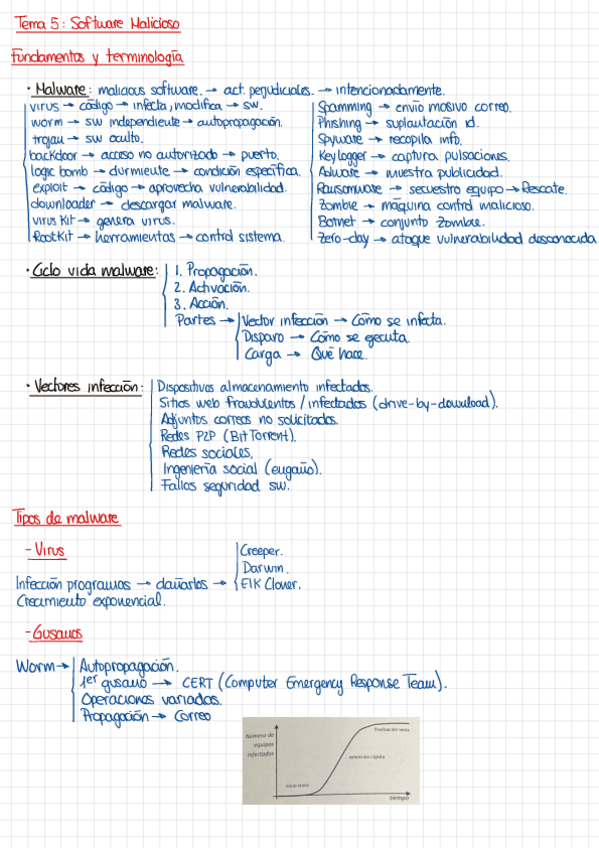 Tema 5: Software Malicioso
Fundamentos y terminología
· Malware: malicious software. → act. perjudiciales. → intencionadamente.
virus → código → infecta, modifica → sw.
worm → sw independiente → autopropagación.
trojan → sw oculto.
backdoor → acceso no autorizado → puerto.
logic bomb → durmiente → condición específica.
exploit → código → aprovecha vulnerabilidad.
downloader → descargar malware.
virus Kit → genera virus.
RootKit → herramientas → control sistema.
Spamming → envío masivo correo.
Phishing → suplantación id.
Spyware → recopila info.
Keylogger → captura pulsaciones.
Adware → muestra publicidad.
Ransomware → secuestro equipo → Rescate.
Zombie → máquina control malicioso.
Botnet → conjunto Zombie.
Zero-day → ataque vulnerabilidad desconocida
· Ciclo vida malware:
1. Propagación.
2. Activación.
3. Acción.
Partes → Vector infección → Cómo se infecta.
Disparo → Cómo se ejecuta.
Carga → Qué hace.
· Vectores infección:
Dispositivos almacenamiento infectados.
Sitios web fraudulentos / infectados (drive-by-download).
Adjuntos correos no solicitados.
Redes P2P (BitTorrent).
Redes sociales.
Ingeniería social (engaño).
Fallos seguridad sw.
Tipos de malware
- Virus
Infección programas → dañarlos →
Crecimiento exponencial.
Creeper.
Darwin.
Elk Cloner.
- Gusanos
Worm →
Autopropagación.
1er gusano → CERT (Computer Emergency Response Team).
Operaciones variadas.
Propagación → Correo
Número de
equipos
infectados
Inicio lento
Extensión rápida
Finalización lenta
tiempo